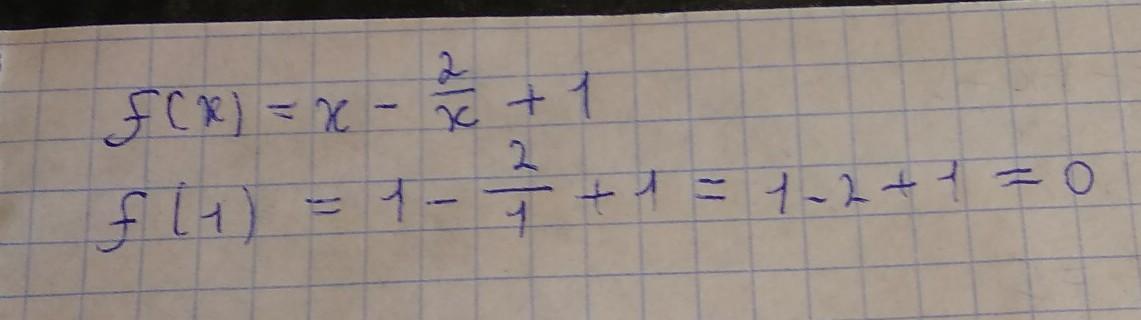 f(x) = x - 2/x + 1
f(1) = 1 - 2/1 + 1 = 1 - 2 + 1 = 0